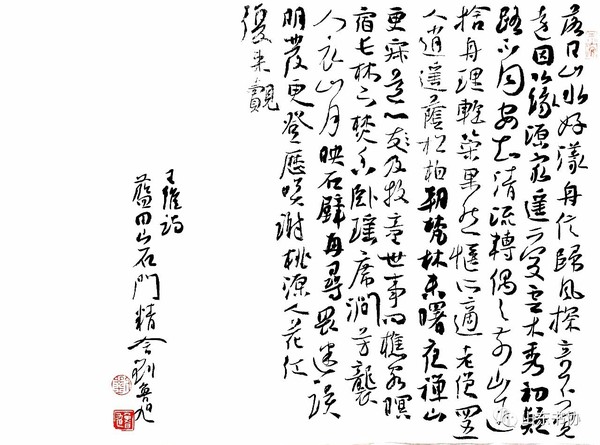 落日山水好漾舟信歸風探奇不覺
遠因以緣源窮遙愛雲木秀初疑
路不同安知清流轉偶與前山通
捨舟理輕策果然愜所適老僧四五
人逍遙蔭松柏朝梵林未曙夜禪山
更寂道心及牧童世事問樵客暝
宿長林下焚香臥瑤席澗芳襲
人衣山月映石壁再尋畏迷誤
明發更登歷笑謝桃源人花紅
復來覿
王維詩
藍田山石門精舍劉魯
山东书协